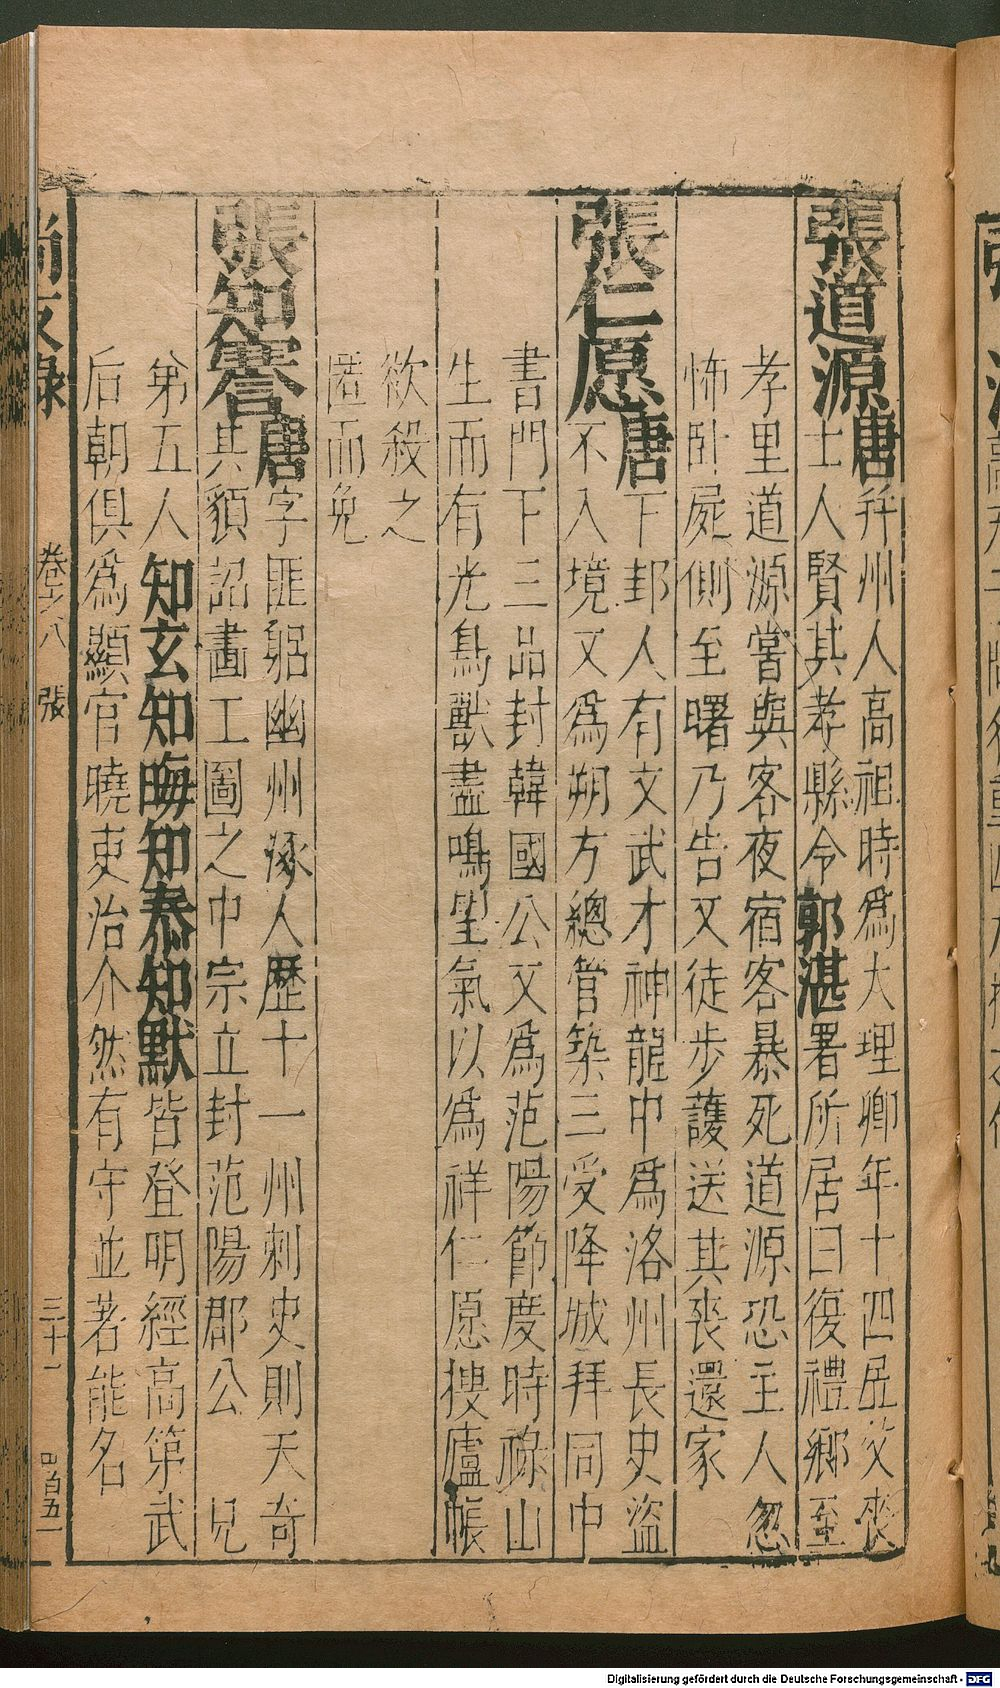 張道源
唐幷州人高祖時爲大理卿年十四居父喪
士人賢其孝縣令郭湛署所居曰復禮鄉至
孝里道源嘗與客夜宿客暴死道源恐主人忽
怖卧屍側至曙乃告又徒步護送其喪還家
張仁愿
唐下邽人有文武才神龍中爲洛州長史盜
不入境又爲朔方總管築三受降城拜同中
書門下三品封韓國公又爲范陽節度時祿山
生而有光鳥獸盡鳴望氣以爲祥仁愿搜廬帳
欲殺之
匿而免
張知謇
唐字匪躬幽州涿人歷十一州刺史則天奇
其貌詔畫工圖之中宗立封范陽郡公 兄
第五人知玄知晦知泰知默皆登明經高第武
后朝俱爲顯官曉吏治介然有守並著能名
尚友錄 卷之八 張 三十一 四百五一
Digitalisierung gefördert durch die Deutsche Forschungsgemeinschaft - DFG